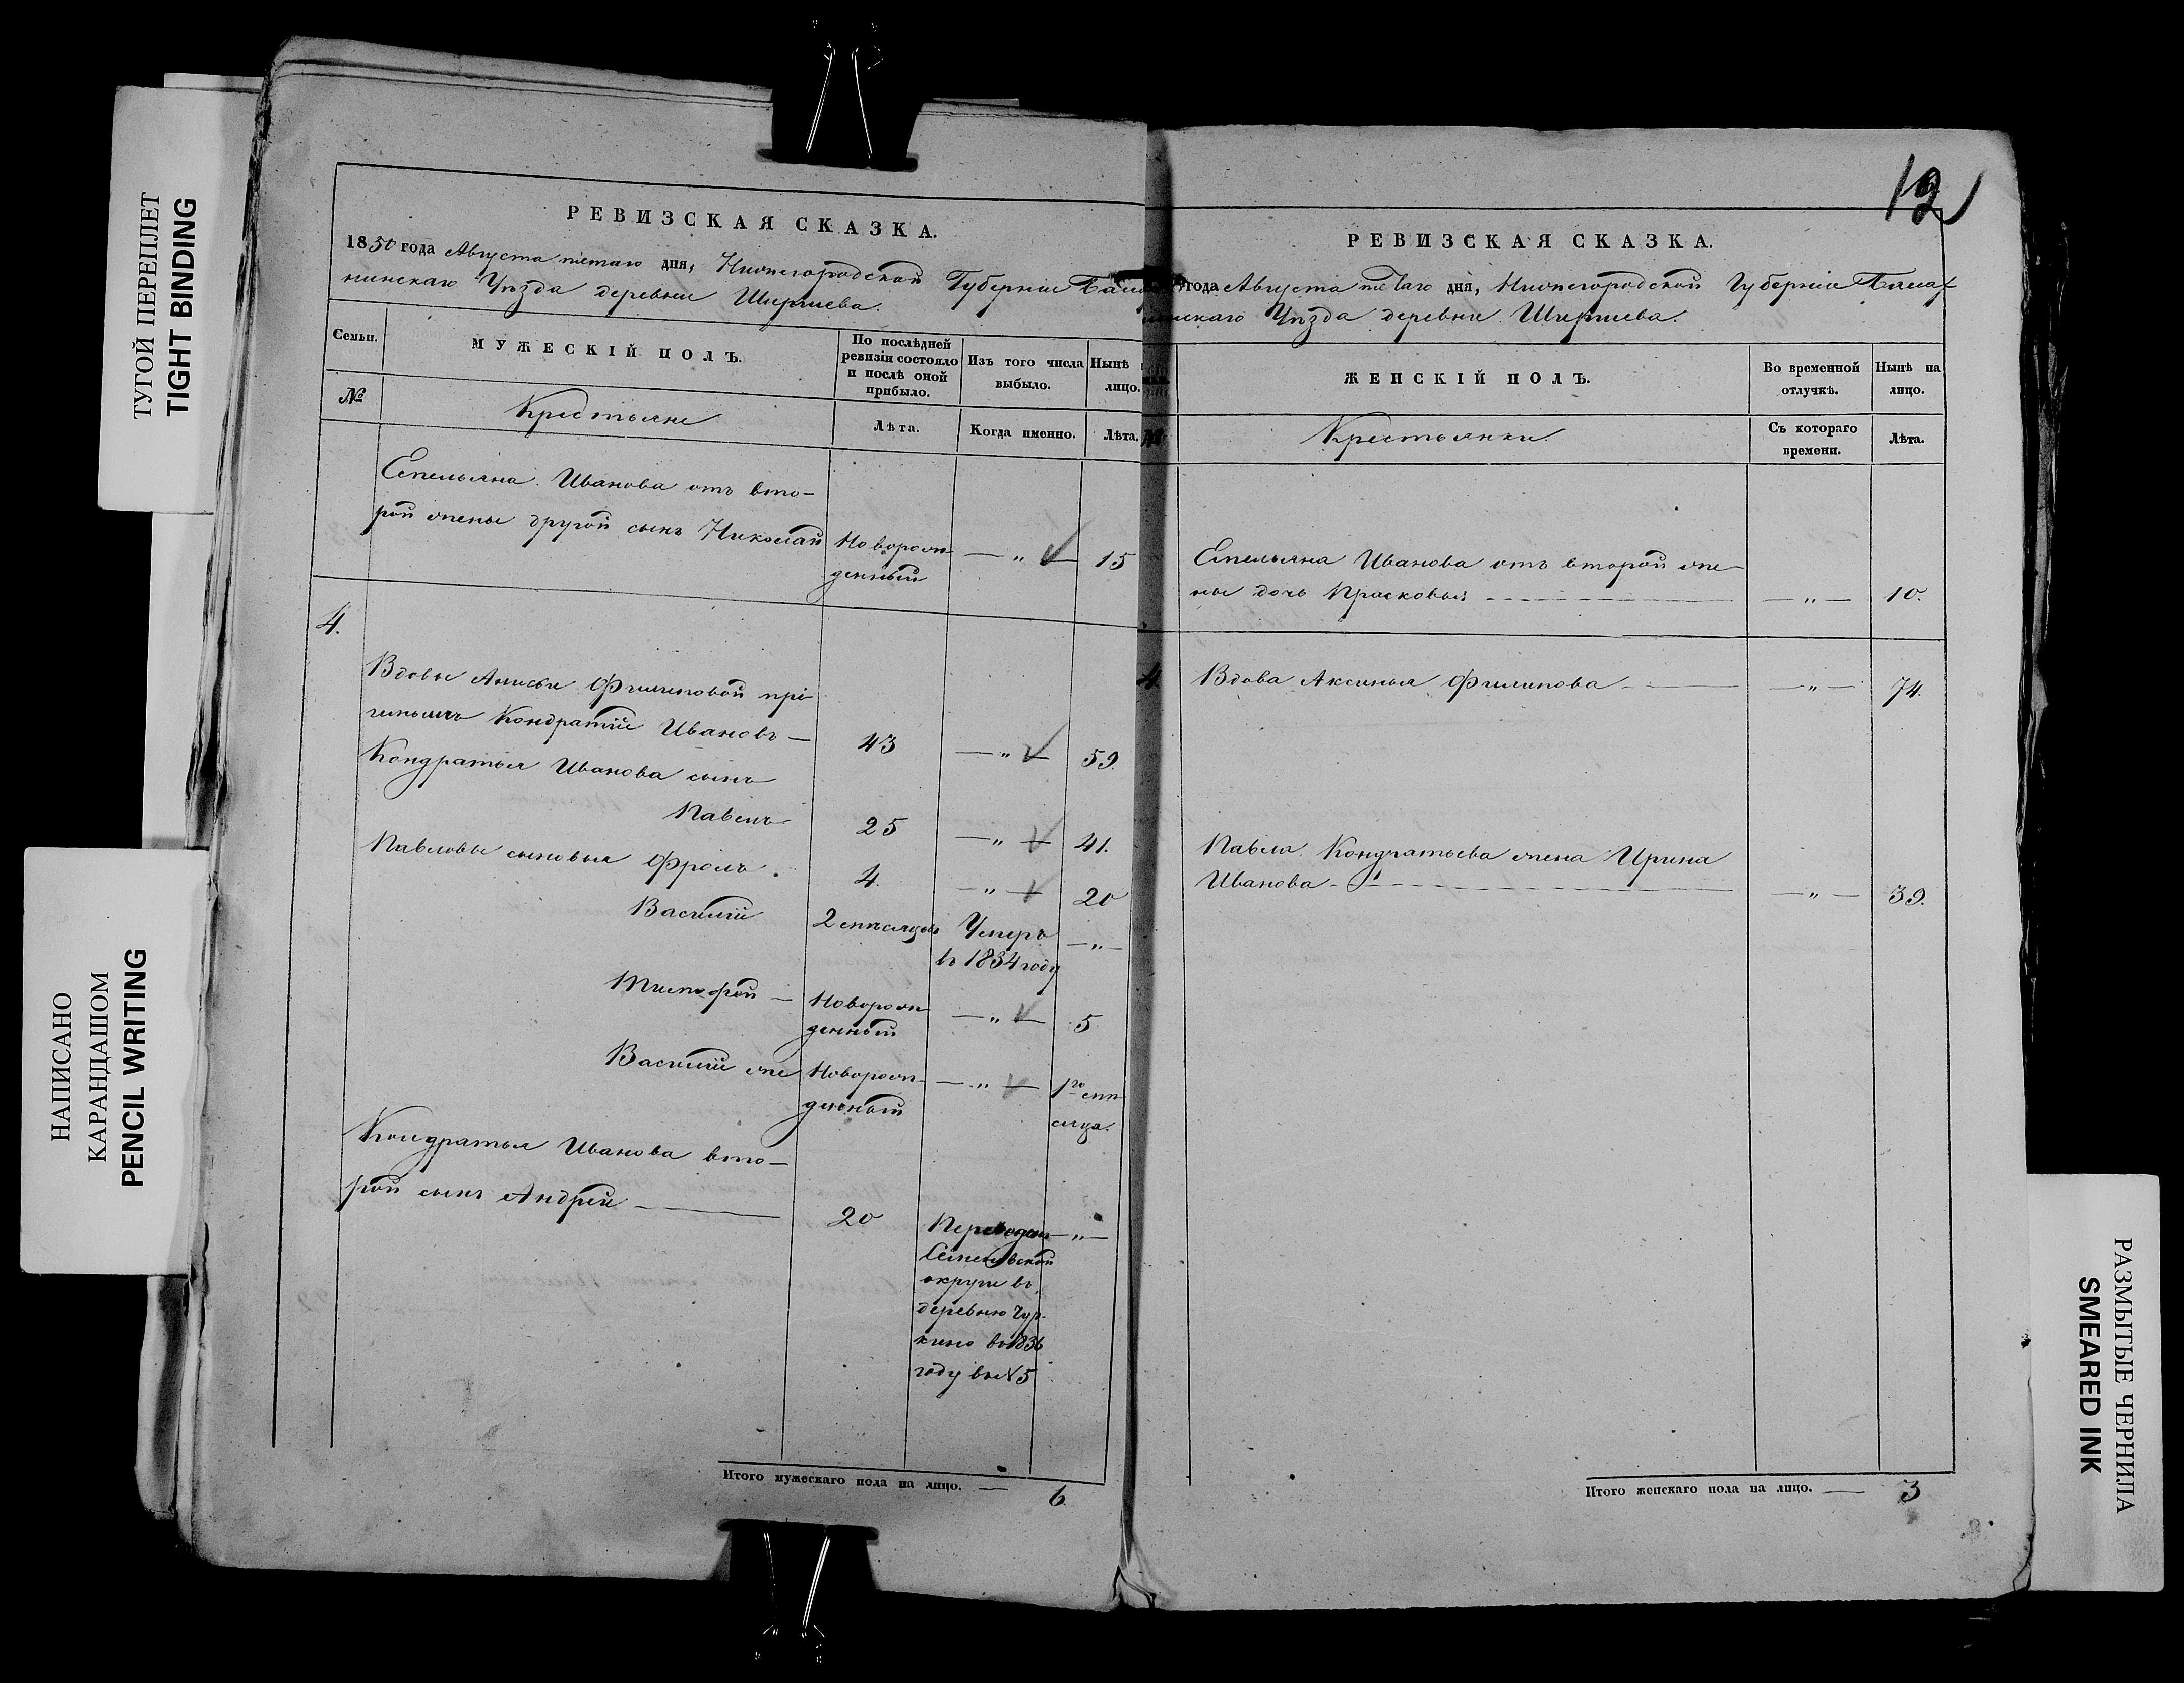 ТУГОЙ ПЕРЕПЛЕТ
TIGHT BINDING
НАПИСАНО
КАРАНДАШОМ
PENCIL WRITING
РЕВИЗСКАЯ СКАЗКА.
1850 года Августа пятаго дня, Нижегородской Губерніи
нинскаго Уѣзда деревни Ширяева.
Семьи.
МУЖЕСКІЙ ПОЛЪ.
По послѣдней ревизіи состояло и послѣ оной прибыло.
Изъ того числа выбыло.
Нынѣ лицо.
№
Крестьяне
Лѣта.
Когда именно.
Лѣта.
Емельяна Иванова отъ вто-
рой жены другой сынъ Николай Новорож- — „ — 15
денный
4.
Вдовы Филиповой прі-
Кондратій Ивановъ — 43 — „ — 59.
Кондратья Иванова сынъ
Павелъ 25 — „ — 41.
Павловы сыновья Фролъ. 4. — „ — 20
Василій 2 мѣсяцовъ Умеръ — „ —
въ 1834 году
Тимофей — Новорож- — „ — 5
денный
Василій же Новорож- — „ — 1го мѣ-
денный сяца.
Кондратья Иванова вто-
рой сынъ Андрей — 20 — „ —
Семеновской
округи въ
деревню Чур-
кино въ 1836
году въ № 5
Итого мужескаго пола на лицо. — 6
12
РЕВИЗСКАЯ СКАЗКА.
года Августа пятаго дня, Нижегородской Губерніи Балах-
нинскаго Уѣзда деревни Ширяева.
ЖЕНСКІЙ ПОЛЪ.
Во временной отлучкѣ.
Нынѣ на лицо.
№
Крестьянки.
Съ котораго времени.
Лѣта.
Емельяна Иванова отъ второй же-
ны дочь Прасковья — „ — 10.
4. Вдова Аксинья Филипова — „ — 74.
Павла Кондратьева жена Ирина
Иванова — „ — 39.
Итого женскаго пола на лицо. — 3
РАЗМЫТЫЕ ЧЕРНИЛА
SMEARED INK